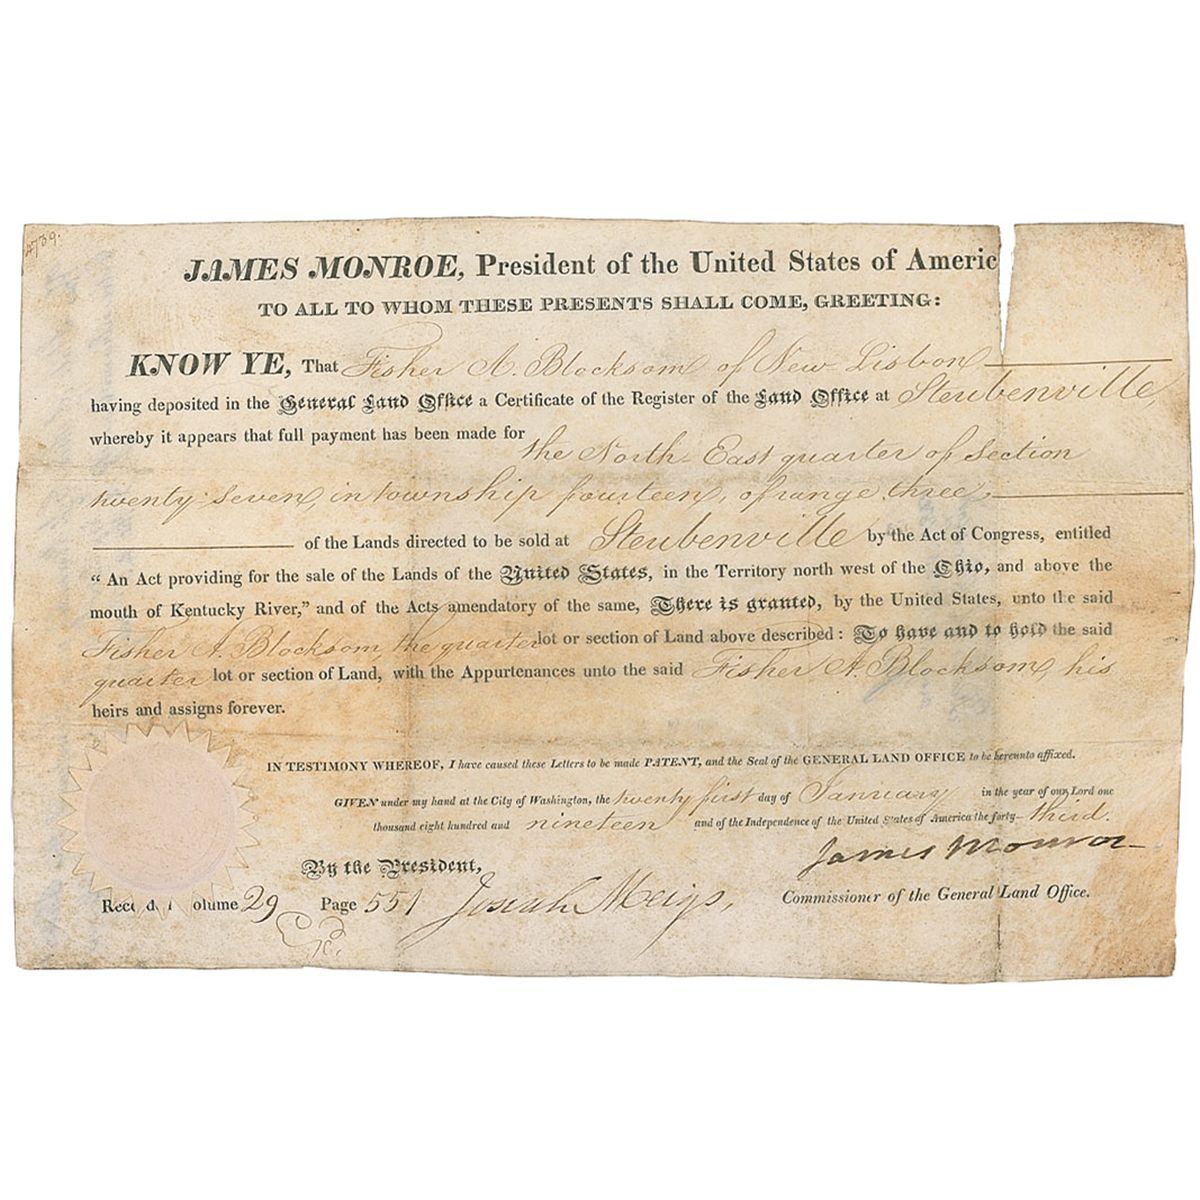 4739.
JAMES MONROE, President of the United States of Americ
TO ALL TO WHOM THESE PRESENTS SHALL COME, GREETING:
KNOW YE, That Fisher A. Blocksom of New Lisbon
having deposited in the General Land Office a Certificate of the Register of the Land Office at Steubenville,
whereby it appears that full payment has been made for the North East quarter of Section
twenty seven, in township fourteen, of range three,
of the Lands directed to be sold at Steubenville by the Act of Congress, entitled
“An Act providing for the sale of the Lands of the United States, in the Territory north west of the Ohio, and above the
mouth of Kentucky River,” and of the Acts amendatory of the same, There is granted, by the United States, unto the said
Fisher A. Blocksom, the quarter lot or section of Land above described: To have and to hold the said
quarter lot or section of Land, with the Appurtenances unto the said Fisher A. Blocksom, his
heirs and assigns forever.
IN TESTIMONY WHEREOF, I have caused these Letters to be made PATENT, and the Seal of the GENERAL LAND OFFICE to be hereunto affixed.
GIVEN under my hand at the City of Washington, the twenty first day of January in the year of our Lord one
thousand eight hundred and nineteen and of the Independence of the United States of America the forty-third.
James Monroe
By the President,
Josiah Meigs, Commissioner of the General Land Office.
Recorded Volume 29 Page 551